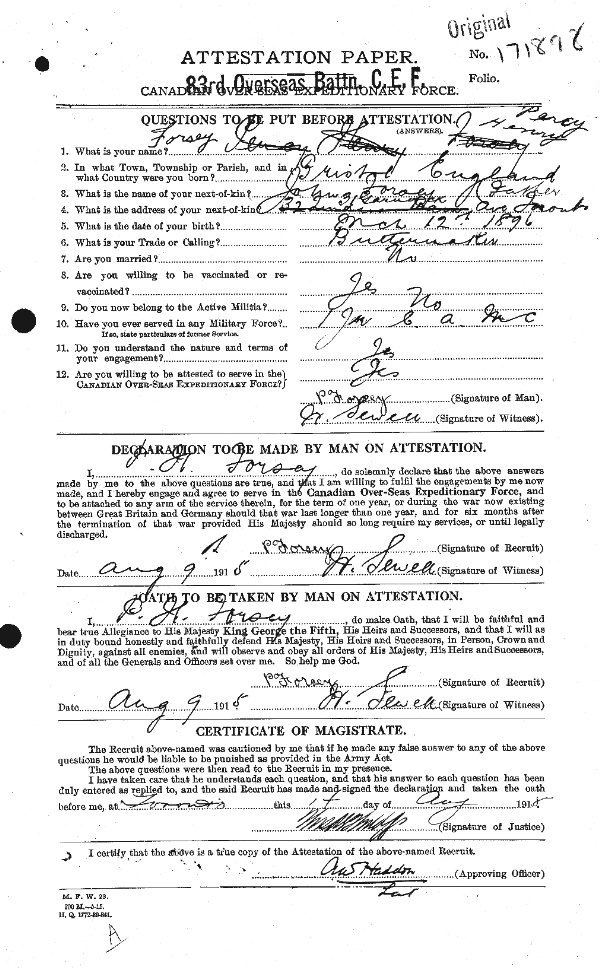 Original
No. 171898
ATTESTATION PAPER.
Folio.
83rd Overseas Battn. C.E.F.
CANADIAN OVER-SEAS EXPEDITIONARY FORCE.
QUESTIONS TO BE PUT BEFORE ATTESTATION.
(ANSWERS).
Percy
Henry
1. What is your name? Forsey
2. In what Town, Township or Parish, and in
what Country were you born? Bristol England
3. What is the name of your next-of-kin? John Forsey Father
4. What is the address of your next-of-kin? Ave Toronto
5. What is the date of your birth? Mch 12th 1896
6. What is your Trade or Calling? Buttermaker
7. Are you married? No
8. Are you willing to be vaccinated or re-
vaccinated? Yes
9. Do you now belong to the Active Militia? No
10. Have you ever served in any Military Force? C A M C
If so, state particulars of former Service.
11. Do you understand the nature and terms of
your engagement? Yes
12. Are you willing to be attested to serve in the
CANADIAN OVER-SEAS EXPEDITIONARY FORCE? Yes
P Forsey (Signature of Man).
H. Sewell (Signature of Witness).
DECLARATION TO BE MADE BY MAN ON ATTESTATION.
I, P. H. Forsey, do solemnly declare that the above answers
made by me to the above questions are true, and that I am willing to fulfil the engagements by me now
made, and I hereby engage and agree to serve in the Canadian Over-Seas Expeditionary Force, and
to be attached to any arm of the service therein, for the term of one year, or during the war now existing
between Great Britain and Germany should that war last longer than one year, and for six months after
the termination of that war provided His Majesty should so long require my services, or until legally
discharged.
P Forsey (Signature of Recruit)
Date Aug 9 1915 H. Sewell (Signature of Witness)
OATH TO BE TAKEN BY MAN ON ATTESTATION.
I, P. H. Forsey, do make Oath, that I will be faithful and
bear true Allegiance to His Majesty King George the Fifth, His Heirs and Successors, and that I will as
in duty bound honestly and faithfully defend His Majesty, His Heirs and Successors, in Person, Crown and
Dignity, against all enemies, and will observe and obey all orders of His Majesty, His Heirs and Successors,
and of all the Generals and Officers set over me. So help me God.
P Forsey (Signature of Recruit)
Date Aug 9 1915 H. Sewell (Signature of Witness)
CERTIFICATE OF MAGISTRATE.
The Recruit above-named was cautioned by me that if he made any false answer to any of the above
questions he would be liable to be punished as provided in the Army Act.
The above questions were then read to the Recruit in my presence.
I have taken care that he understands each question, and that his answer to each question has been
duly entered as replied to, and the said Recruit has made and signed the declaration and taken the oath
before me, at Toronto this day of Aug 1915
(Signature of Justice)
I certify that the above is a true copy of the Attestation of the above-named Recruit.
Haddon (Approving Officer)
M. F. W. 23.
200 M.—5-15.
H. Q. 1772-39-841.
A